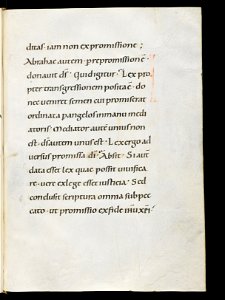 ditas · iam non ex promissione ;
Abrahae autem · p repromissione
donauit d̄s · Quid igitur · Lex pro
pter transgressionem posita ē · do
nec ueniret semen cui promiserat
ordinata p angelos in manu medi
atoris · Mediator autē unius non
est · d̄s autem unus est · Lex ergo ad
uersus promissa dī · Absit · Si aūt
data esset lex quae possit uiuifica
re · uere ex lege esset iusticia · Sed
conclusit scriptura omnia sub pec
cato · ut promissio ex fide iħu xp̄i